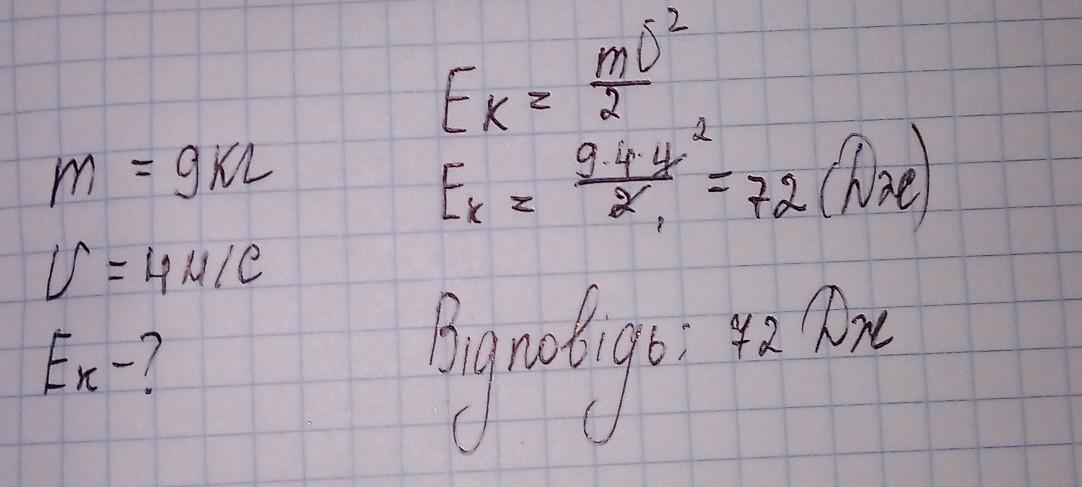 m = 9кг
υ = 4м/с
Eк - ?
Eк = mυ²/2
Eк = 9·4·4²/2₁ = 72 (Дж)
Відповідь: 72 Дж